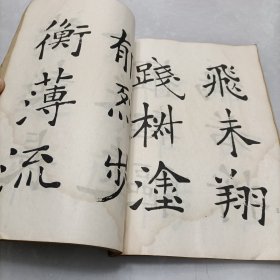 飛未翔
踐椒塗
郁烈步
衡薄流